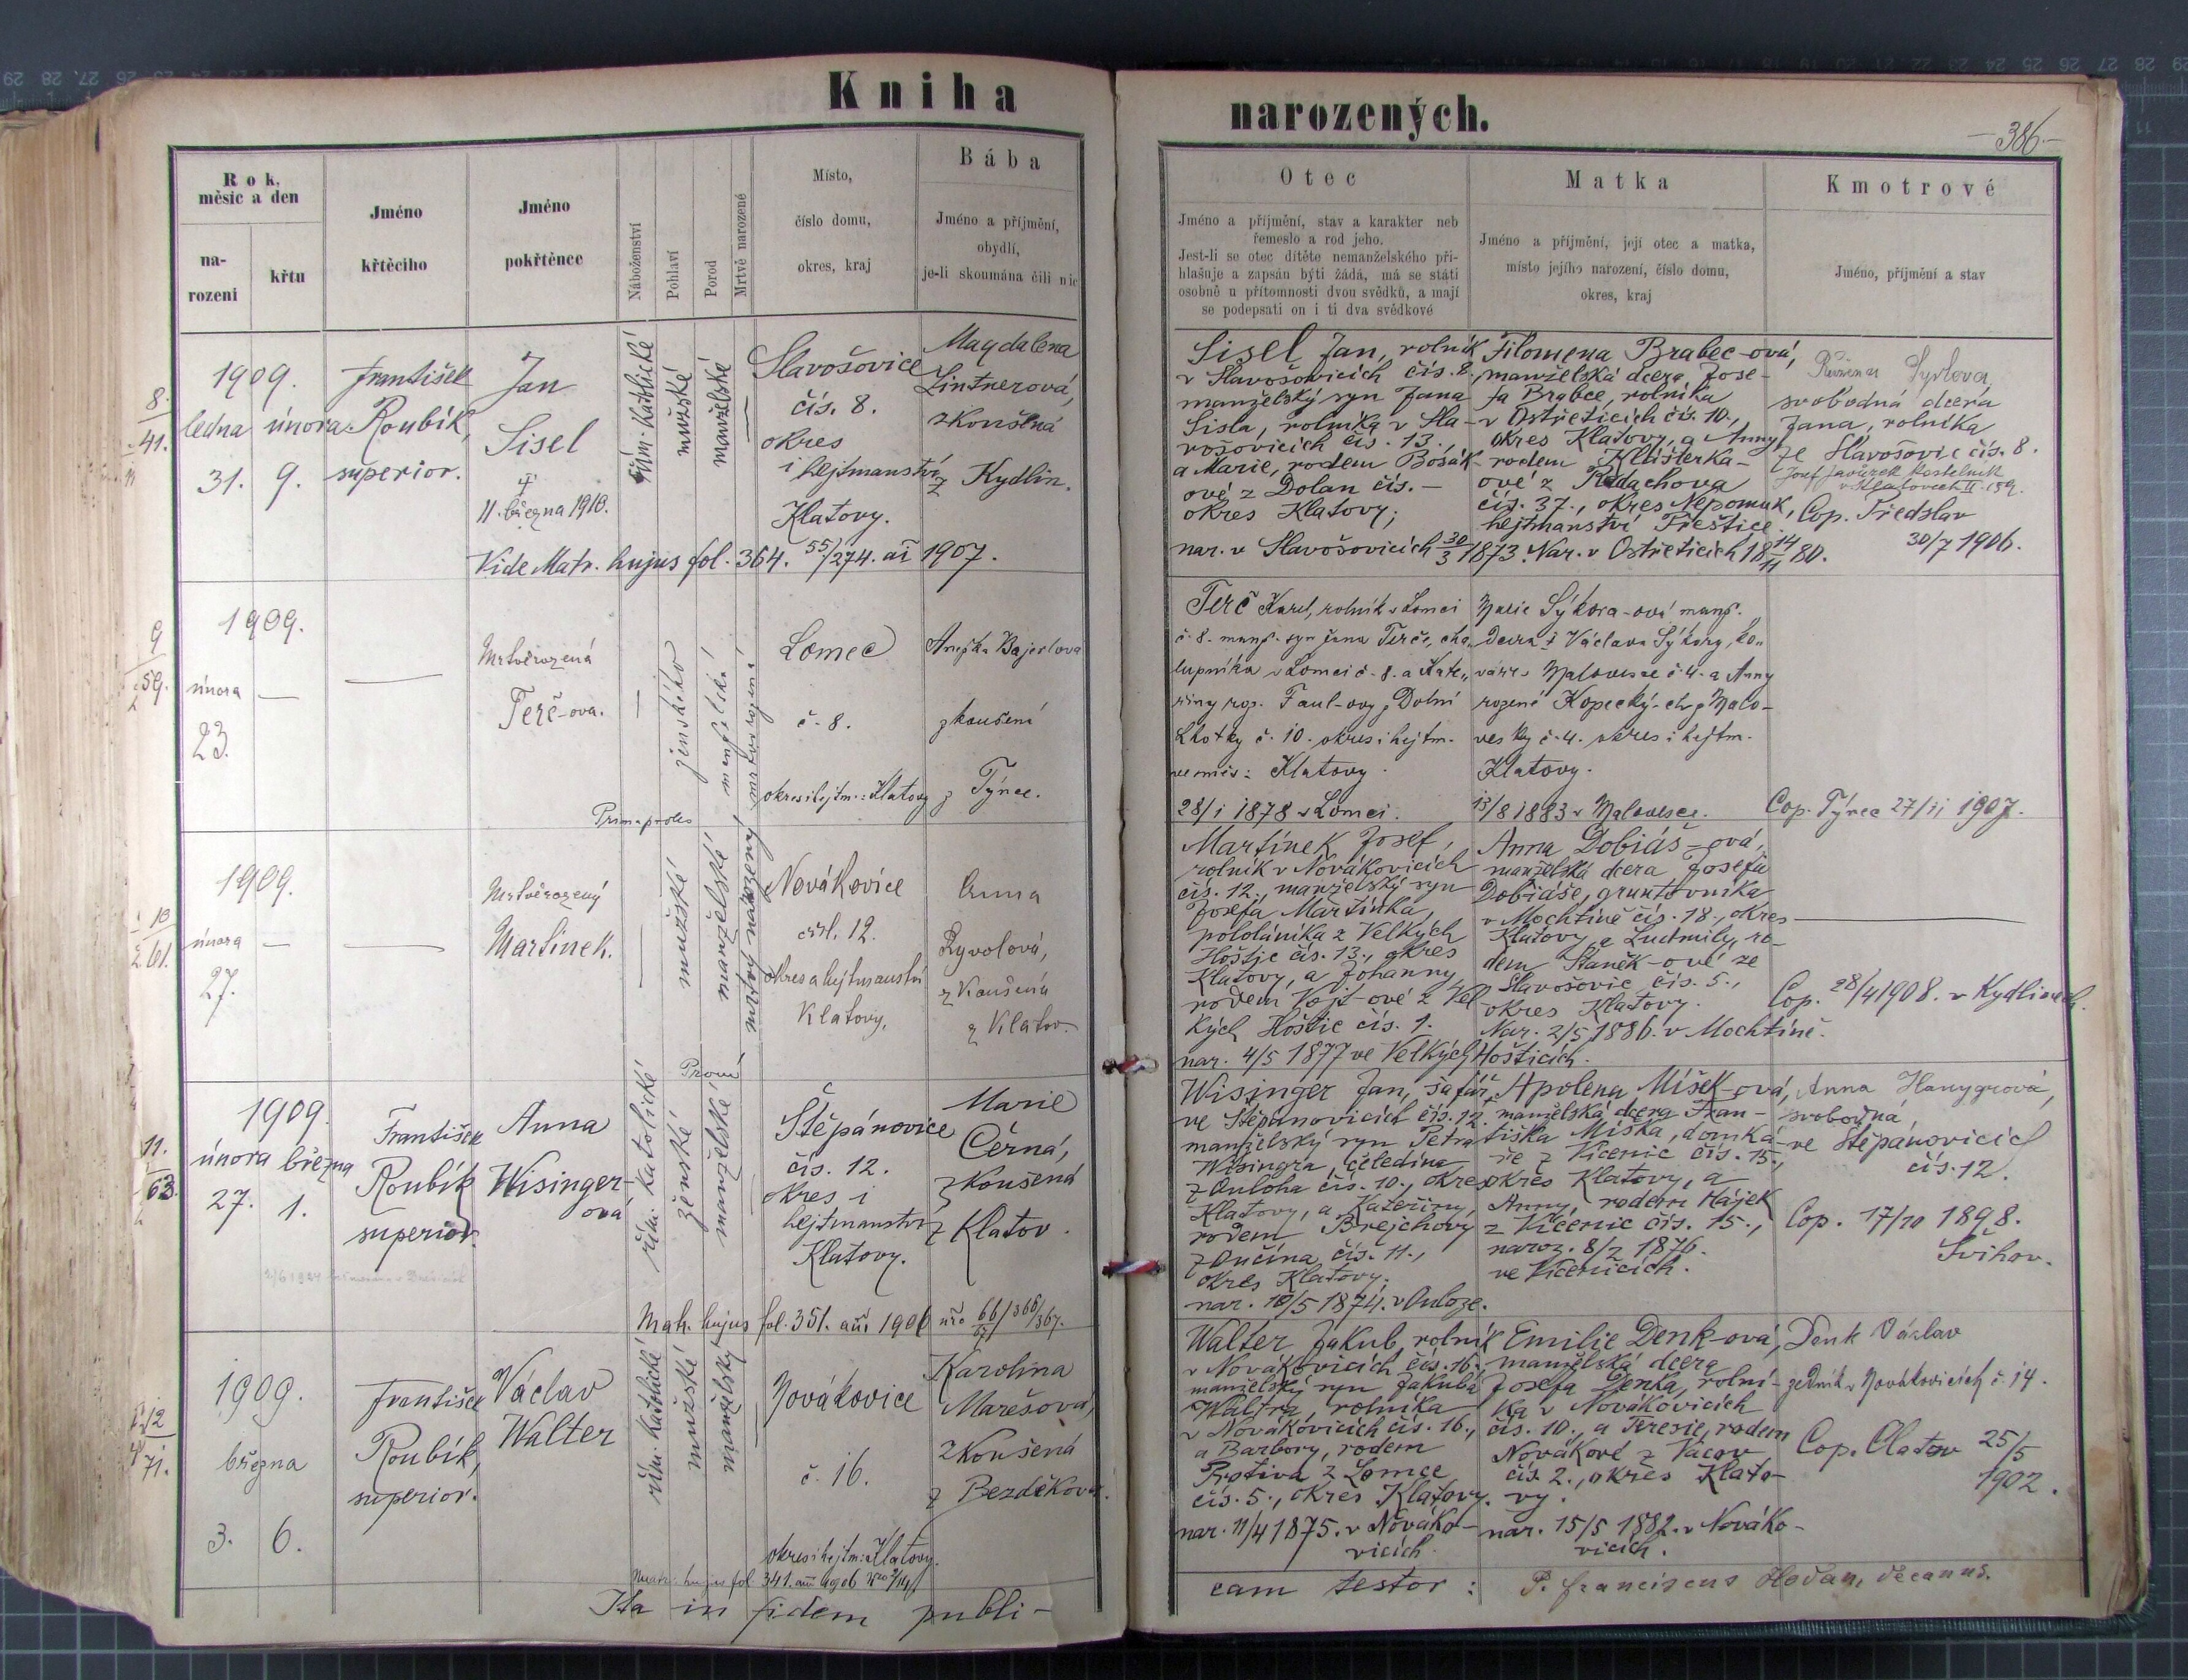 Kniha
narozených.
-386-
Rok,
měsíc a den
na-
rozeni
křtu
Jméno
křtěcího
Jméno
pokřtěnce
Náboženství
Pohlaví
Porod
Mrtvě narozené
Místo,
číslo domu,
okres, kraj
Bába
Jméno a příjmění,
obydlí,
je-li skoumána čili nic
Otec
Jméno a příjmění, stav a karakter neb
řemeslo a rod jeho.
Jest-li se otec dítěte nemanželského při-
hlašuje a zapsán býti žádá, má se státi
osobně u přítomnosti dvou svědků, a mají
se podepsati on i ti dva svědkové
Matka
Jméno a příjmění, její otec a matka,
místo jejího narození, číslo domu,
okres, kraj
Kmotrové
Jméno, příjmění a stav
8.
41.
1909.
ledna února
31. 9.
František
Roubík,
superior.
Jan
Sisel
11. března 1910.
řím. katolické
mužské
manželské
Slavošovice
čís. 8.
okres
i hejtmanství
Klatovy.
Magdalena
Lintnerová,
zkoušená
z Kydlin.
Vide Matr. hujus fol. 364. 55/274. ai 1907.
Sisel Jan, rolník
v Slavošovicích čís. 8.,
manželský syn Jana
Sisla, rolníka v Sla-
vošovicích čís. 13.,
a Marie, rodem Bošák-
ové z Dolan čís. —
okres Klatovy;
nar. v Slavošovicích 30/3 1873.
Filomena Brabec-ová,
manželská dcera Jose-
fa Brabce, rolníka
v Ostřeticích čís. 10.,
okres Klatovy, a Anny,
rodem Klášterka-
ové z
čís. 37., okres Nepomuk,
hejtmanství Přeštice.
Nar. v Ostřeticích 18 14/11 80.
svobodná dcera
Jana, rolníka
ze Slavošovic čís. 8.
Josef Javůrek kostelník
v Klatovech II 159.
Cop. Předslav
30/7 1906.
9
59.
1909.
února —
23.
Mrtvěrozená
Terč-ova.
ženského
manželská
mrtvorozená
Lomec
č. 8.
okres i hejtm.: Klatovy
Anežka Bajerlova
zkoušení
z Týnce.
Prima proles
Terč Karel, rolník v Lomci
č. 8. manž. syn Jana Terče, cha-
lupníka v Lomci č. 8. a Kate-
řiny roz. Faul-ovy z Dolní
Lhotky č. 10. okres i hejtm.
Klatovy.
28/1 1878 v Lomci.
Marie Sýkora-ová manž.
dcera Václava Sýkory, ko-
váře v Malovesce č. 4. a Anny
rozené Kopecký-ch z Malo-
vesky č. 4. okres i hejtm.
Klatovy.
13/8 1883 v Malovesce.
Cop. Týnec 27/11 1907.
10
61.
1909.
února —
27.
Mrtvěrozený
Martínek.
mužské
manželské
mrtvý narozený
Novákovice
čísl. 12.
okres a hejtmanství
Klatovy,
Anna
Ryvolová,
zkoušená
z Klatov.
Martínek Josef,
rolník v Novákovicích
čís. 12., manželský syn
Josefa Martínka,
pololáníka z Velkých
Hoštic čís. 13., okres
Klatovy, a Johanny,
rodem Vojt-ové z Vel-
kých Hoštic čís. 1.
nar. 4/5 1877 ve Velkých Hošticích.
Anna Dobiáš-ová,
manželská dcera Josefa
Dobiáše, gruntovníka
v Mochtíně čís. 18., okres
Klatovy, a Ludmily, ro-
dem Staněk-ové ze
Slavošovic čís. 5.,
okres Klatovy.
Nar. 2/5 1886. v Mochtíně.
Cop. 28/4 1908. v Kydlinech.
11.
63.
1909.
února března
27. 1.
František
Roubík
superior.
Anna
Wisinger-
ová
řím. katolické
ženské
manželské
Štěpánovice
čís. 12.
okres i
hejtmanství
Klatovy.
Marie
Černá,
zkoušená
z Klatov.
Matr. hujus fol. 351. ani 1906 nro 66/57 366/367.
Wisinger Jan, šafář
ve Štěpánovicích čís. 12.,
manželský syn Petra
Wisingra, čeledína
z Ouloha čís. 10., okres
Klatovy, a Kateřiny,
rodem Brejchovy
z Ončína čís. 11.,
okres Klatovy;
nar. 10/5 1874. v Ouloze.
Apolena Míšek-ová,
manželská dcera Fran-
tiška Míška, domká-
ře z Vícenic čís. 15.,
okres Klatovy, a
Anny, rodem Hájek
z Vícenic čís. 15.,
naroz. 8/2 1876.
ve Vícenicích.
Anna Hanygrová,
svobodná
ve Štěpánovicích
čís. 12.
Cop. 17/10 1898.
Švihov.
12
71.
1909.
března
3. 6.
František
Roubík,
superior.
Václav
Walter
řím. katolické
mužské
manželský
Novákovice
č. 16.
okres i hejtm: Klatovy.
Karolina
Marešová,
zkoušená
z Bezděkova.
Matr. hujus fol 341.
Walter Jakub, rolník
v Novákovicích čís. 16.,
manželský syn Jakuba
Waltra, rolníka
v Novákovicích čís. 16.,
a Barbory, rodem
Protiva z Lomce
čís. 5., okres Klatovy.
nar. 11/4 1875. v Nováko-
vicích.
Emilie Denk-ová,
manželská dcera
Josefa Denka, rolní-
ka v Novákovicích
čís. 10., a Terezie, rodem
Novákové z Vacov
čís. 2., okres Klato-
vy.
nar. 15/5 1882. v Nováko-
vicích.
Denk Václav
zedník v Novákovicích č. 14.
Cop. Clatov 25/5
1902.
Ita in fidem publi-
cam testor: P. Franciscus Hodan, decanus.